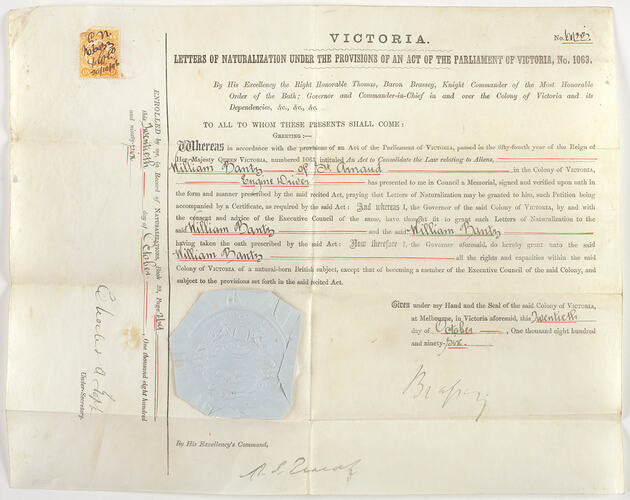 VICTORIA.
No.
LETTERS OF NATURALIZATION UNDER THE PROVISIONS OF AN ACT OF THE PARLIAMENT OF VICTORIA, No. 1063.
By His Excellency the Right Honorable Thomas, Baron Brassey, Knight Commander of the Most Honorable
Order of the Bath; Governor and Commander-in-Chief in and over the Colony of Victoria and its
Dependencies, &c., &c., &c.
TO ALL TO WHOM THESE PRESENTS SHALL COME:
GREETING:—
Whereas in accordance with the provisions of an Act of the Parliament of Victoria, passed in the fifty-fourth year of the Reign of
Her Majesty QUEEN VICTORIA, numbered 1063, intituled An Act to Consolidate the Law relating to Aliens,
William Bantz of St Arnaud in the Colony of VICTORIA,
Engine Driver has presented to me in Council a Memorial, signed and verified upon oath in
the form and manner prescribed by the said recited Act, praying that Letters of Naturalization may be granted to him, such Petition being
accompanied by a Certificate, as required by the said Act: And whereas I, the Governor of the said Colony of VICTORIA, by and with
the consent and advice of the Executive Council of the same, have thought fit to grant such Letters of Naturalization to the
said William Bantz and the said William Bantz
having taken the oath prescribed by the said Act: Now therefore I, the Governor aforesaid, do hereby grant unto the said
William Bantz all the rights and capacities within the said
Colony of VICTORIA of a natural-born British subject, except that of becoming a member of the Executive Council of the said Colony, and
subject to the provisions set forth in the said recited Act.
Given under my Hand and the Seal of the said Colony of VICTORIA,
at Melbourne, in Victoria aforesaid, this Twentieth
day of October, One thousand eight hundred
and ninety-six.
Brassey
By His Excellency's Command,
ENROLLED by me, in Record of NATURALIZATIONS, Book 23, Page
this Twentieth day of October, One thousand eight hundred
and ninety-six
Charles A Topp
Under-Secretary.
20/10/96